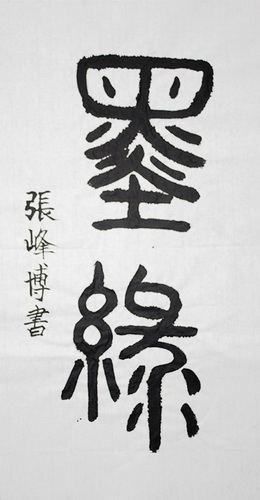 墨緣
張峰博書